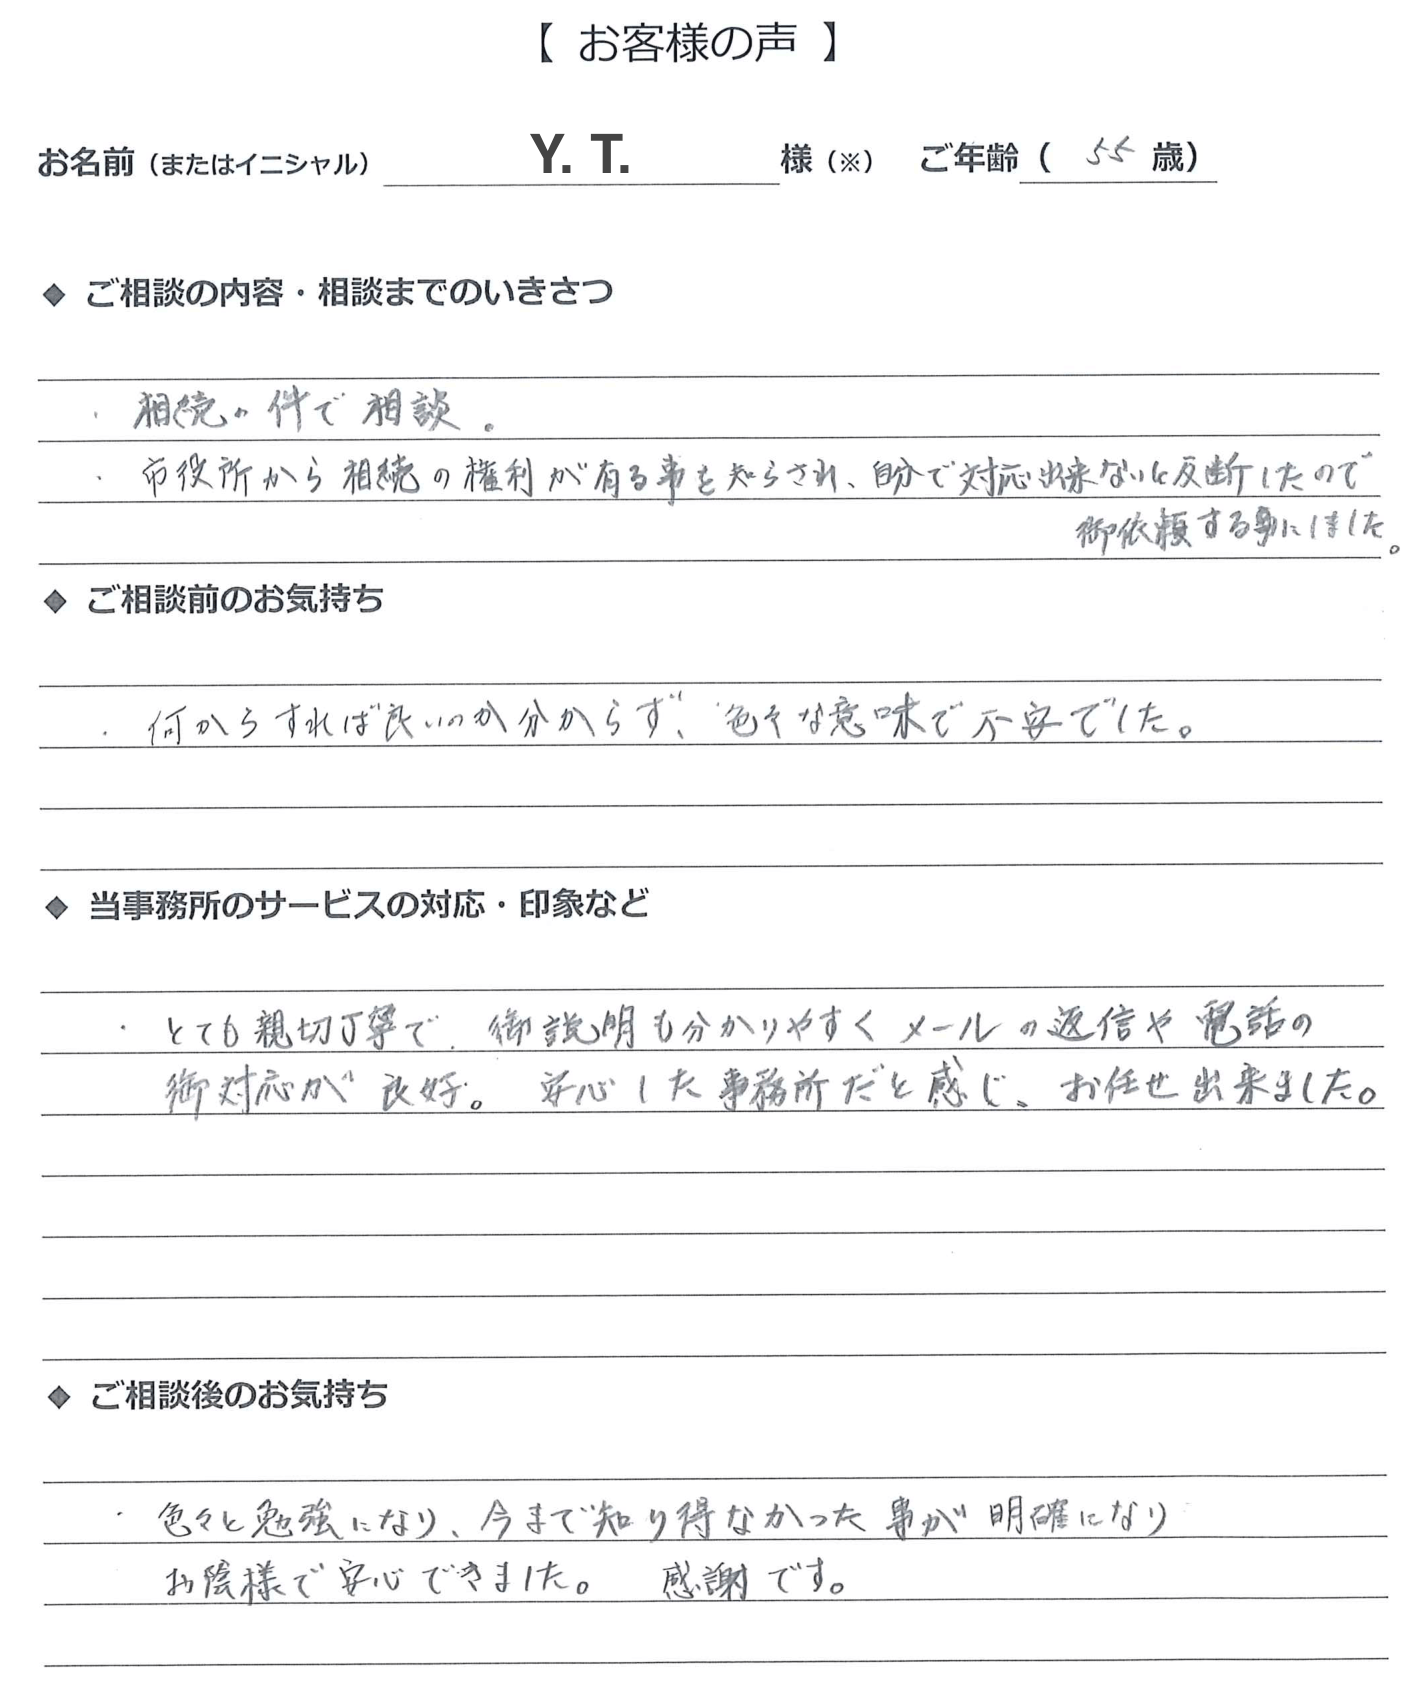 【 お客様の声 】
お名前（またはイニシャル） Y. T. 様（※） ご年齢（ 55 歳）
◆ ご相談の内容・相談までのいきさつ
・相続の件で相談。
・市役所から相続の権利が有る事を知らされ、自分で対応出来ないと反断したので
御依頼する事にしました。
◆ ご相談前のお気持ち
・何からすれば良いのか分からず、色々な意味で不安でした。
◆ 当事務所のサービスの対応・印象など
・とても親切丁寧で、御説明も分かりやすくメールの返信や電話の
御対応が良好。安心した事務所だと感じ、お任せ出来ました。
◆ ご相談後のお気持ち
・色々と勉強になり、今まで知り得なかった事が明確になり
お陰様で安心できました。 感謝です。